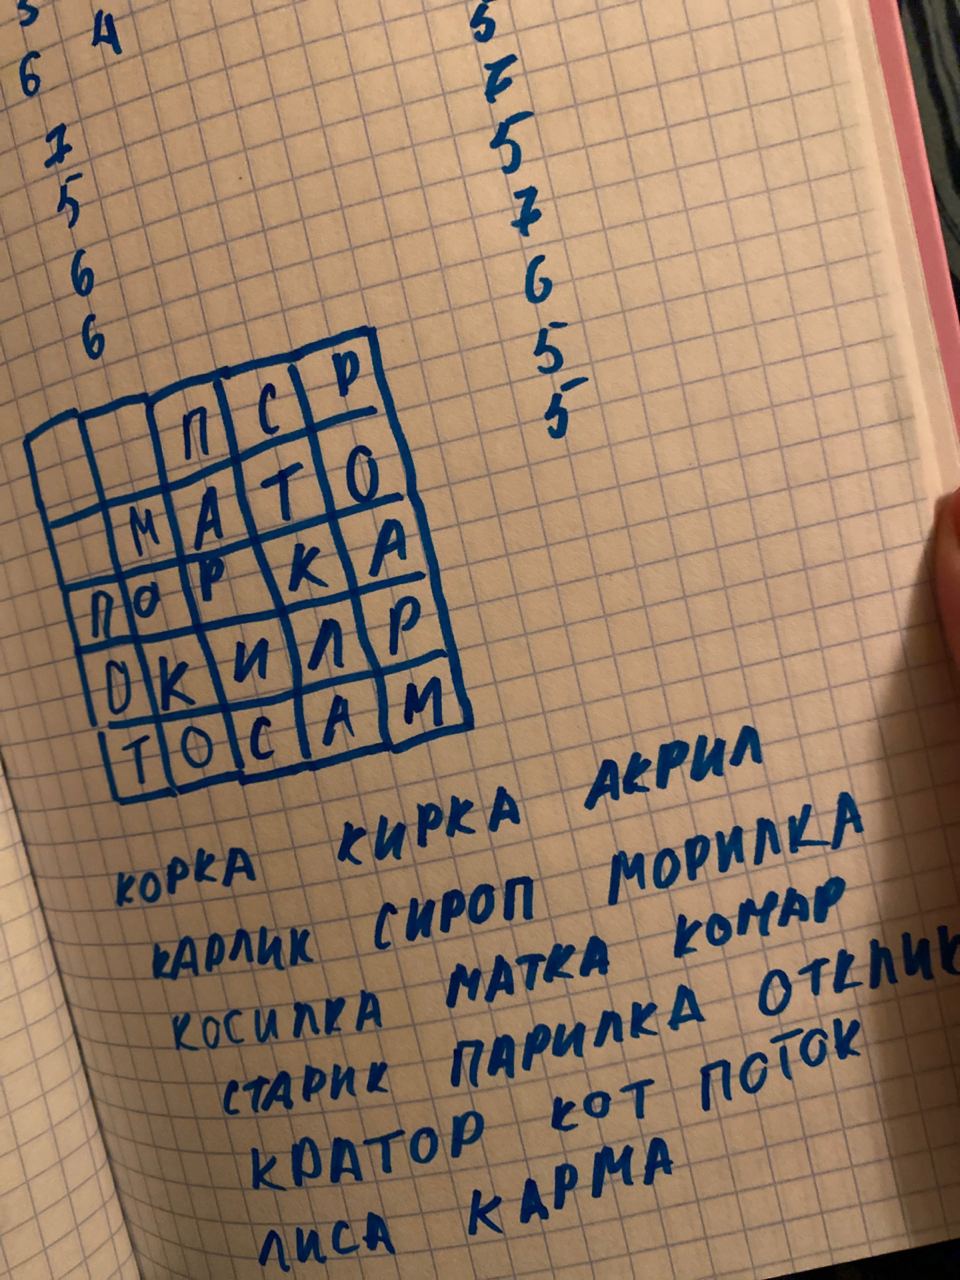 5 4 5
6 7
7 5
5 7
6 6
6 5
5
П С Р
М А Т О
П О Р К А
О К И Л Р
Т О С А М
КОРКА КИРКА АКРИЛ
КАРЛИК СИРОП МОРИЛКА
КОСИЛКА МАТКА КОМАР
СТАРИК ПАРИЛКА ОТКЛИК
КРАТОР КОТ ПОТОК
ЛИСА КАРМА